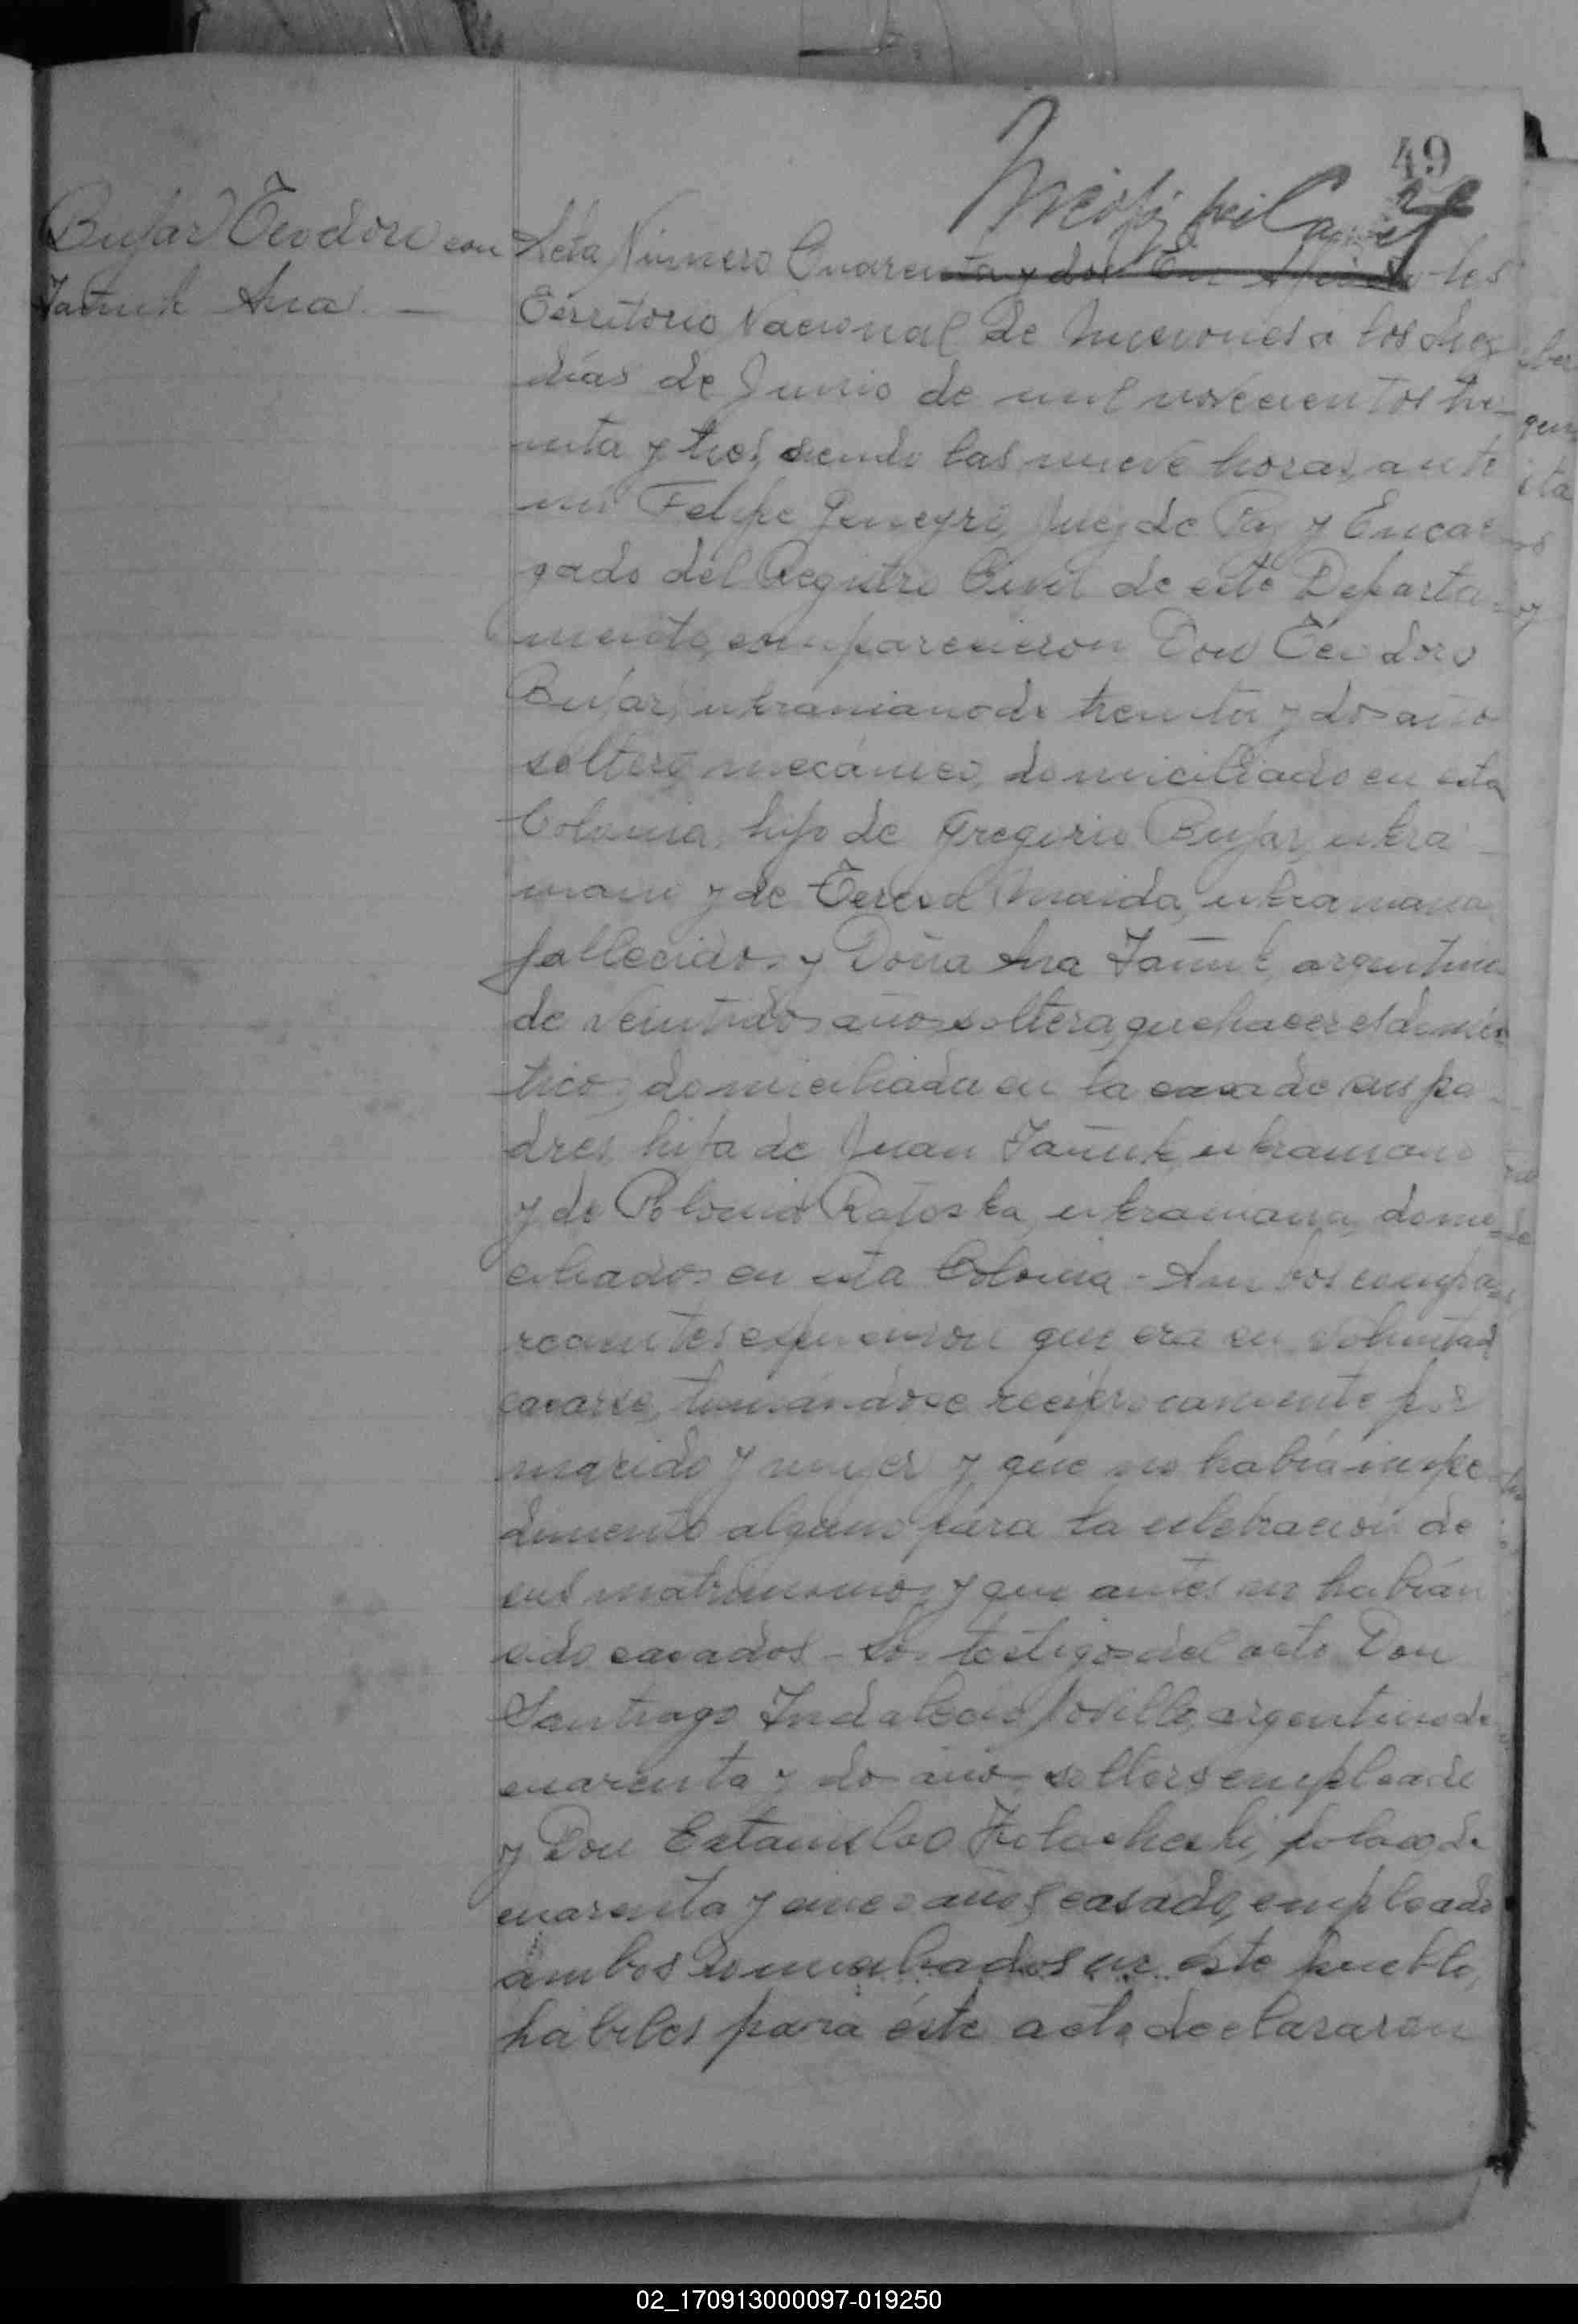 49
Bujar Teodoro con
Tañuk Ana. —
Acta Número Cuarenta y dos En Apóstoles
Territorio Nacional de Misiones a los diez
días de Junio de mil novecientos tre-
inta y tres, siendo las nueve horas, ante
mi Felipe Juez de Paz y Encar
gado del Registro Civil de este Departa
mento, comparecieron Don Teodoro
Bujar, ukraniano de treinta y dos año
soltero, mecánico, domiciliado en esta
Colonia, hijo de Gregorio Bujar, ukra
niano y de Teresa Maida, ukraniana
fallecidos y Doña Ana Tañuk, argentina
de veintidos años soltera, quehaceres domés
ticos, domiciliada en la casa de sus pa
dres, hija de Juan Tañuk, ukraniano
y de Polonia Rajoska, ukraniana, domi
ciliados en esta Colonia - Ambos compa
recientes expusieron que era su voluntad
casarse, tomándose recíprocamente por
marido y mujer y que no había impe
dimento alguno para la celebración de
sus matrimonios y que antes no habían
sido casados - Los testigos del acto Don
Santiago Indalecio argentino de
cuarenta y dos años soltero empleado
y Don Estanislao polaco, de
cuarenta y cinco años, casado, empleado
ambos domiciliados en éste pueblo,
hábiles para éste acto, declararon
02_170913000097-019250